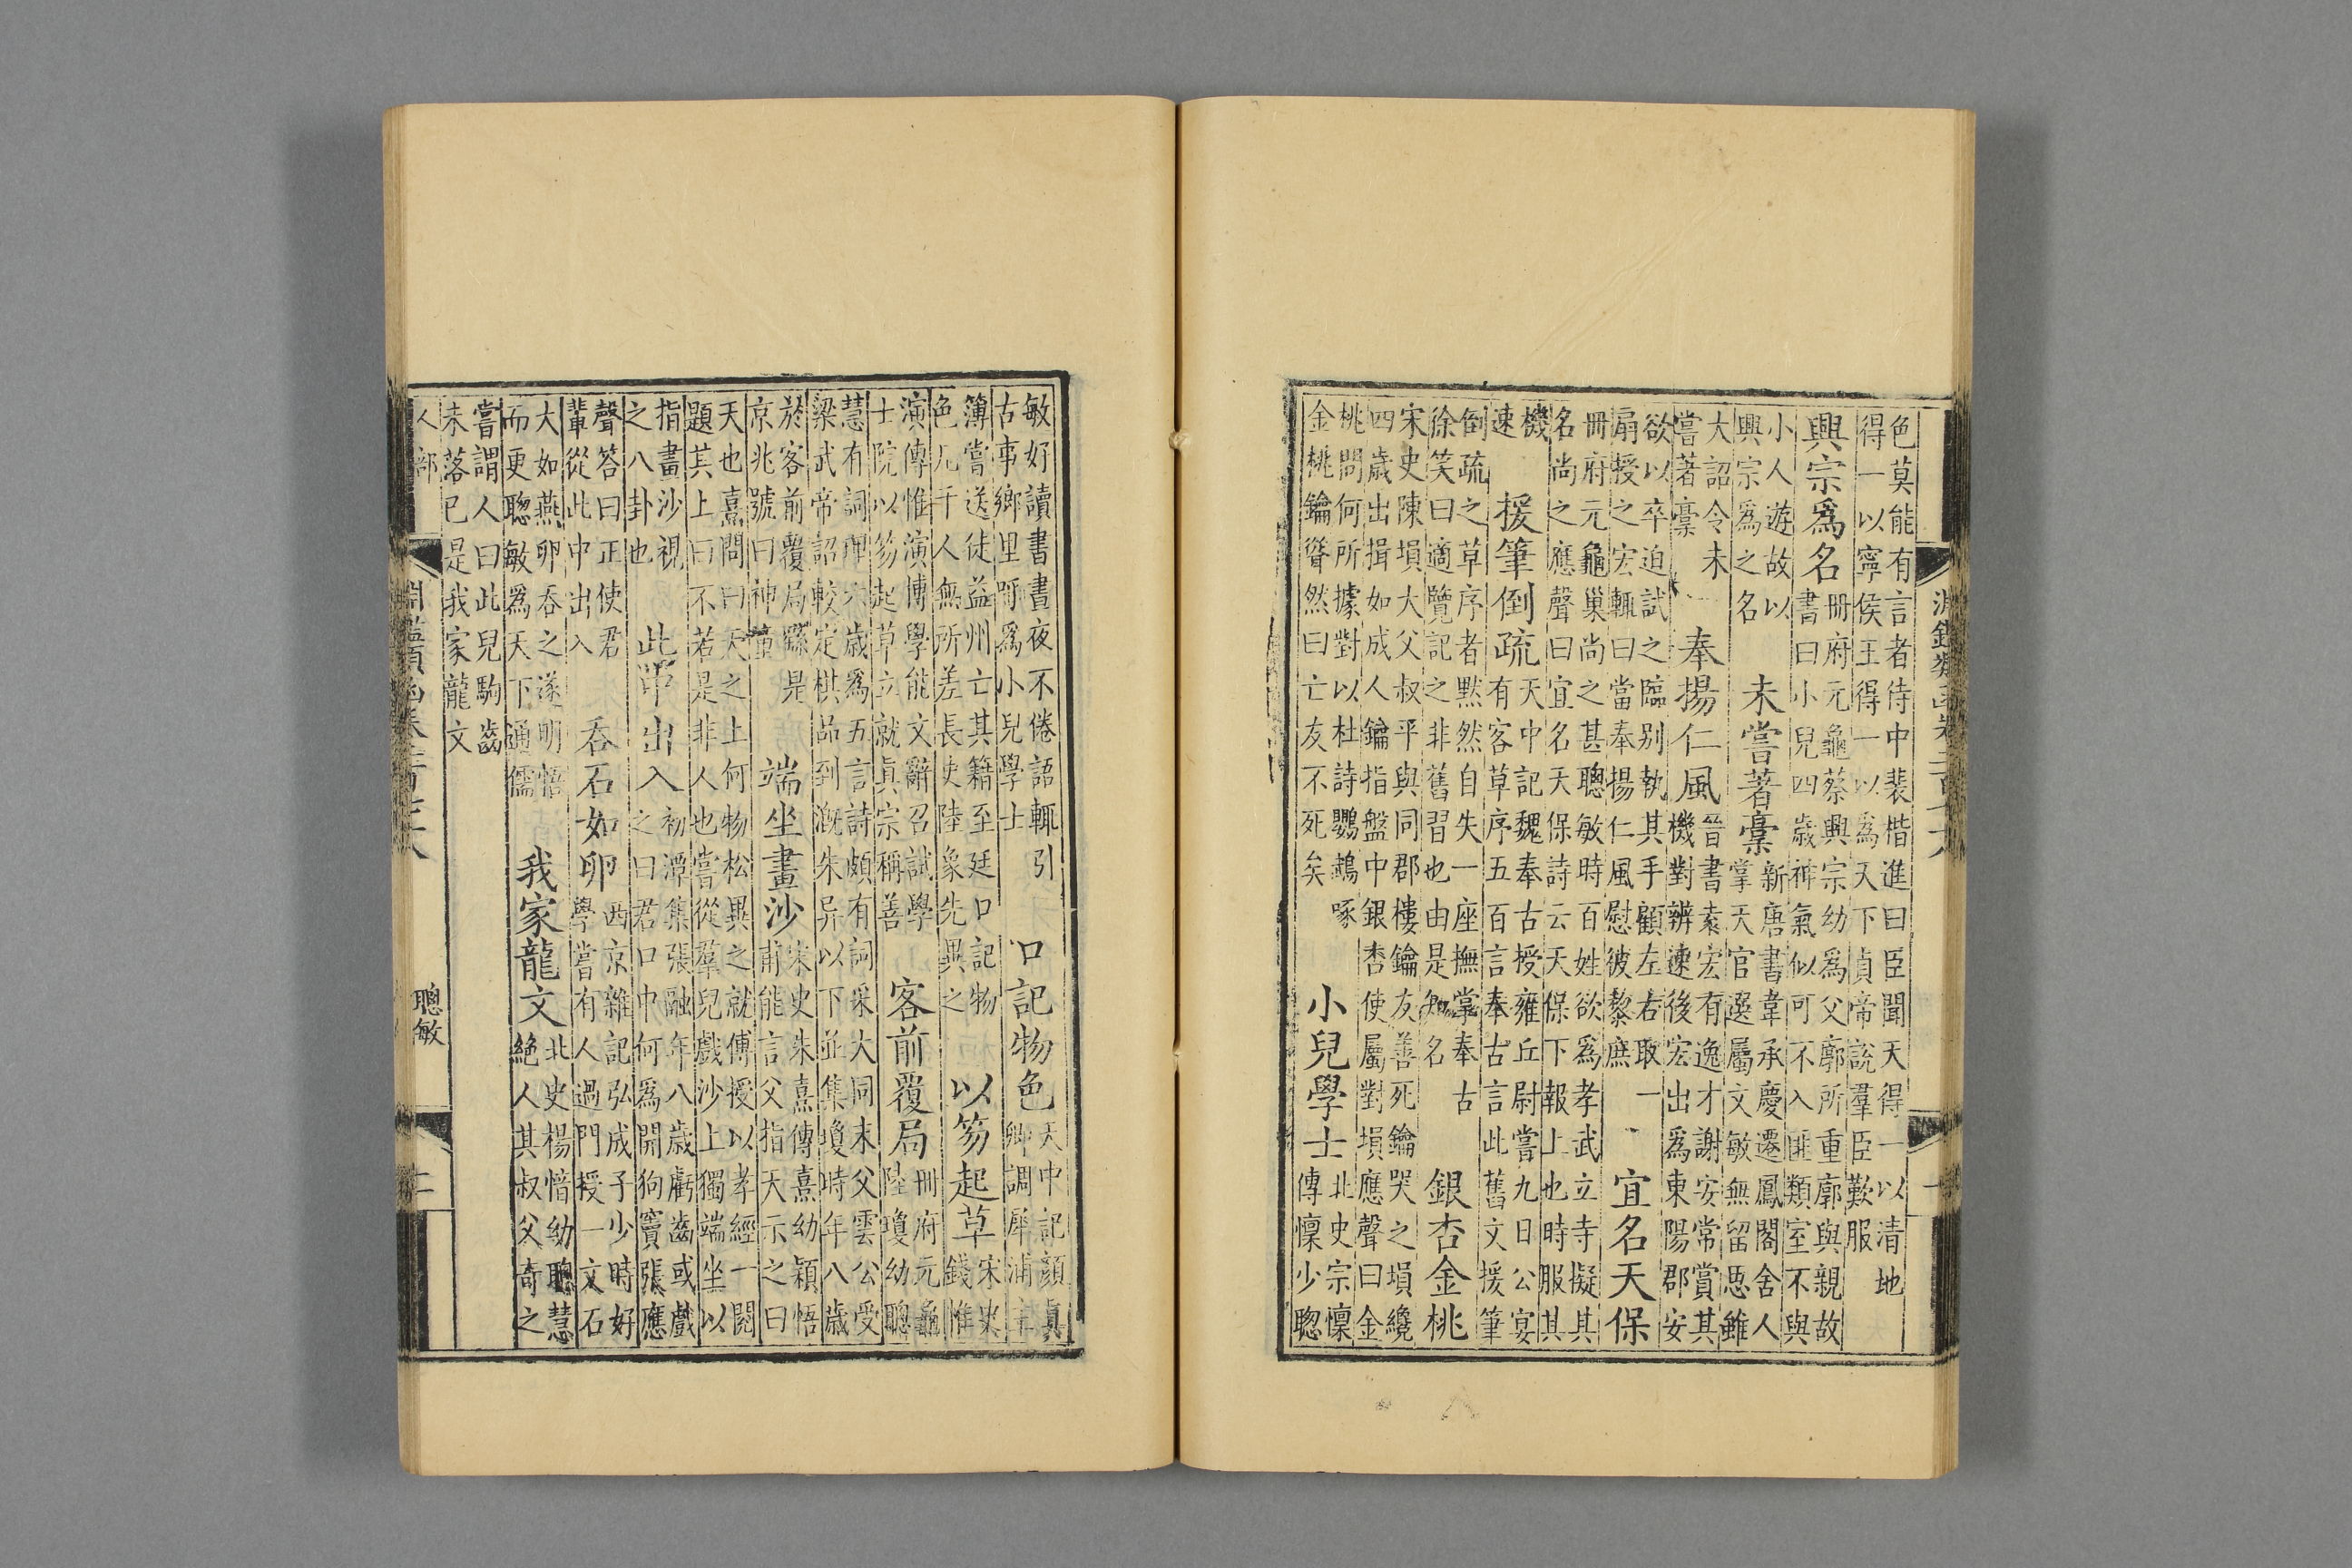 色莫能有言者侍中裴楷進曰臣聞天得一以清地
得一以寧侯王得一以為天下貞帝說羣臣歎服
興宗爲名
冊府元龜蔡興宗幼爲父廓所重廓與親故
書曰小兒四歲神氣似可不入匪類室不與
小人遊故以
興宗爲之名
未嘗著稾
新唐書韋承慶遷鳳閣舍人
掌天官選屬文敏無留思雖
大詔令未
嘗著稾
奉揚仁風
晉書袁宏有逸才謝安常賞其
機對辨速後宏出爲東陽郡安
欲以卒迫試之臨别執其手顧左右取一
扇授之宏輒曰當奉揚仁風慰彼黎庶
宜名天保
冊府元龜巢尚之甚聰敏時百姓欲爲孝武立寺擬其
名尚之應聲曰宜名天保詩云天保下報上也時服其
機
速
援筆倒疏
天中記魏奉古授雍丘尉嘗九日公宴
有客草序五百言奉古言此舊文援筆
倒疏之草序者默然自失一座撫掌奉古
徐笑曰適覽記之非舊習也由是知名
銀杏金桃
宋史陳塤大父叔平與同郡樓鑰友善死鑰哭之塤纔
四歲出揖如成人鑰指盤中銀杏使屬對塤應聲曰金
桃問何所據對以杜詩鸚鵡啄
金桃鑰聳然曰亡友不死矣
小兒學士
北史宗懍
傳懍少聰
敏好讀書晝夜不倦語輒引
古事鄉里呼爲小兒學士
口記物色
天中記顔真
卿調犀浦主
簿嘗送徒益州亡其籍至廷口記物
色凡千人無所差長史陸象先異之
以笏起草
宋史
錢惟
演傳惟演博學能文辭召試學
士院以笏起草立就真宗稱善
客前覆局
冊府元龜
陸瓊幼聰
慧有詞理六歲爲五言詩頗有詞采大同末父雲公受
梁武帝詔較定棋品到溉朱异以下並集瓊時年八歲
於客前覆局繇是
京兆號曰神童
端坐畫沙
宋史朱熹傳熹幼穎悟
甫能言父指天示之曰
天也熹問曰天之上何物松異之就傅授以孝經一閱
題其上曰不若是非人也嘗從羣兒戲沙上獨端坐以
指畫沙視
之八卦也
此中出入
初潭集張融年八歲虧齒或戲
之曰君口中何爲開狗竇張應
聲答曰正使君
輩從此中出入
吞石如卵
西京雜記弘成子少時好
學嘗有人過門授一文石
大如燕卵吞之遂明悟
而更聰敏爲天下通儒
我家龍文
北史楊愔幼聰慧
絶人其叔父奇之
嘗謂人曰此兒駒齒
未落已是我家龍文
人部
聰敏
二